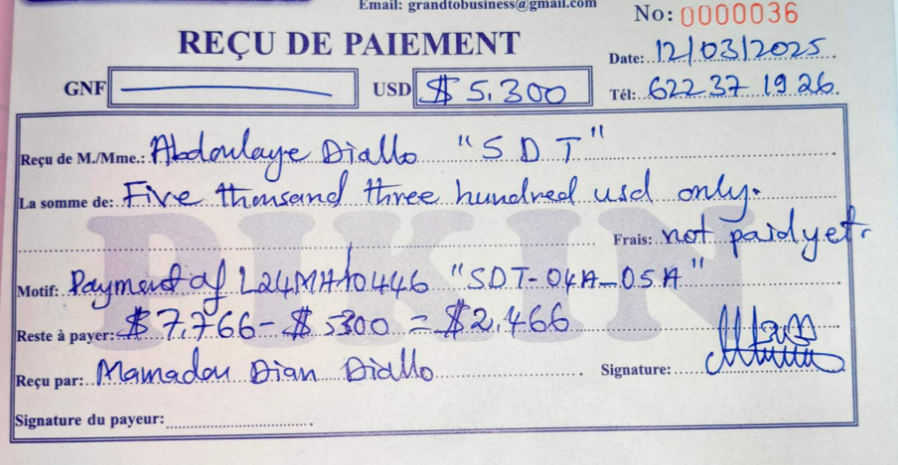 Email: grandtobusiness@gmail.com
No: 0000036
REÇU DE PAIEMENT
Date: 12/03/2025
GNF USD $ 5.300 Tél: 622 37 19 26.
Reçu de M./Mme.: Abdoulaye Diallo "SDT"
La somme de: Five thousand three hundred usd only.
Frais: not paid yet.
Motif: Payment of L24MH10446 "SDT-04A-05A"
Reste à payer: $7.766-$5300 = $2.466
Reçu par: Mamadou Dian Diallo Signature:
Signature du payeur:
PIKIN